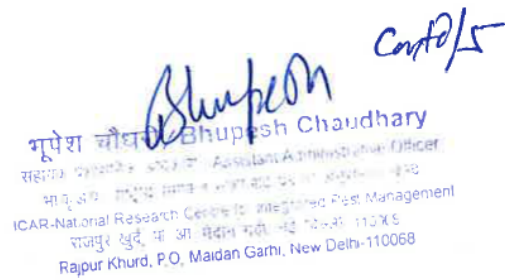 Contd/5
Bhupesh
भूपेश चौधरी/Bhupesh Chaudhary
सहायक Assistant Administrative Officer
ICAR-National Research Centre for Integrated Pest Management
राजपुर खुर्द, पो. आ. मैदान गढ़ी, नई दिल्ली-110068
Rajpur Khurd, P.O, Maidan Garhi, New Delhi-110068